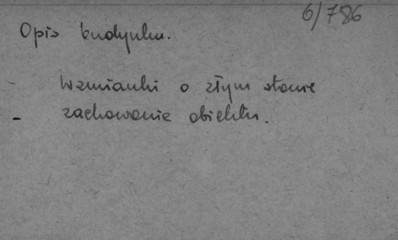 6/786
Opis budynku.
- Wzmianki o złym stanie
- zachowanie obiektu.